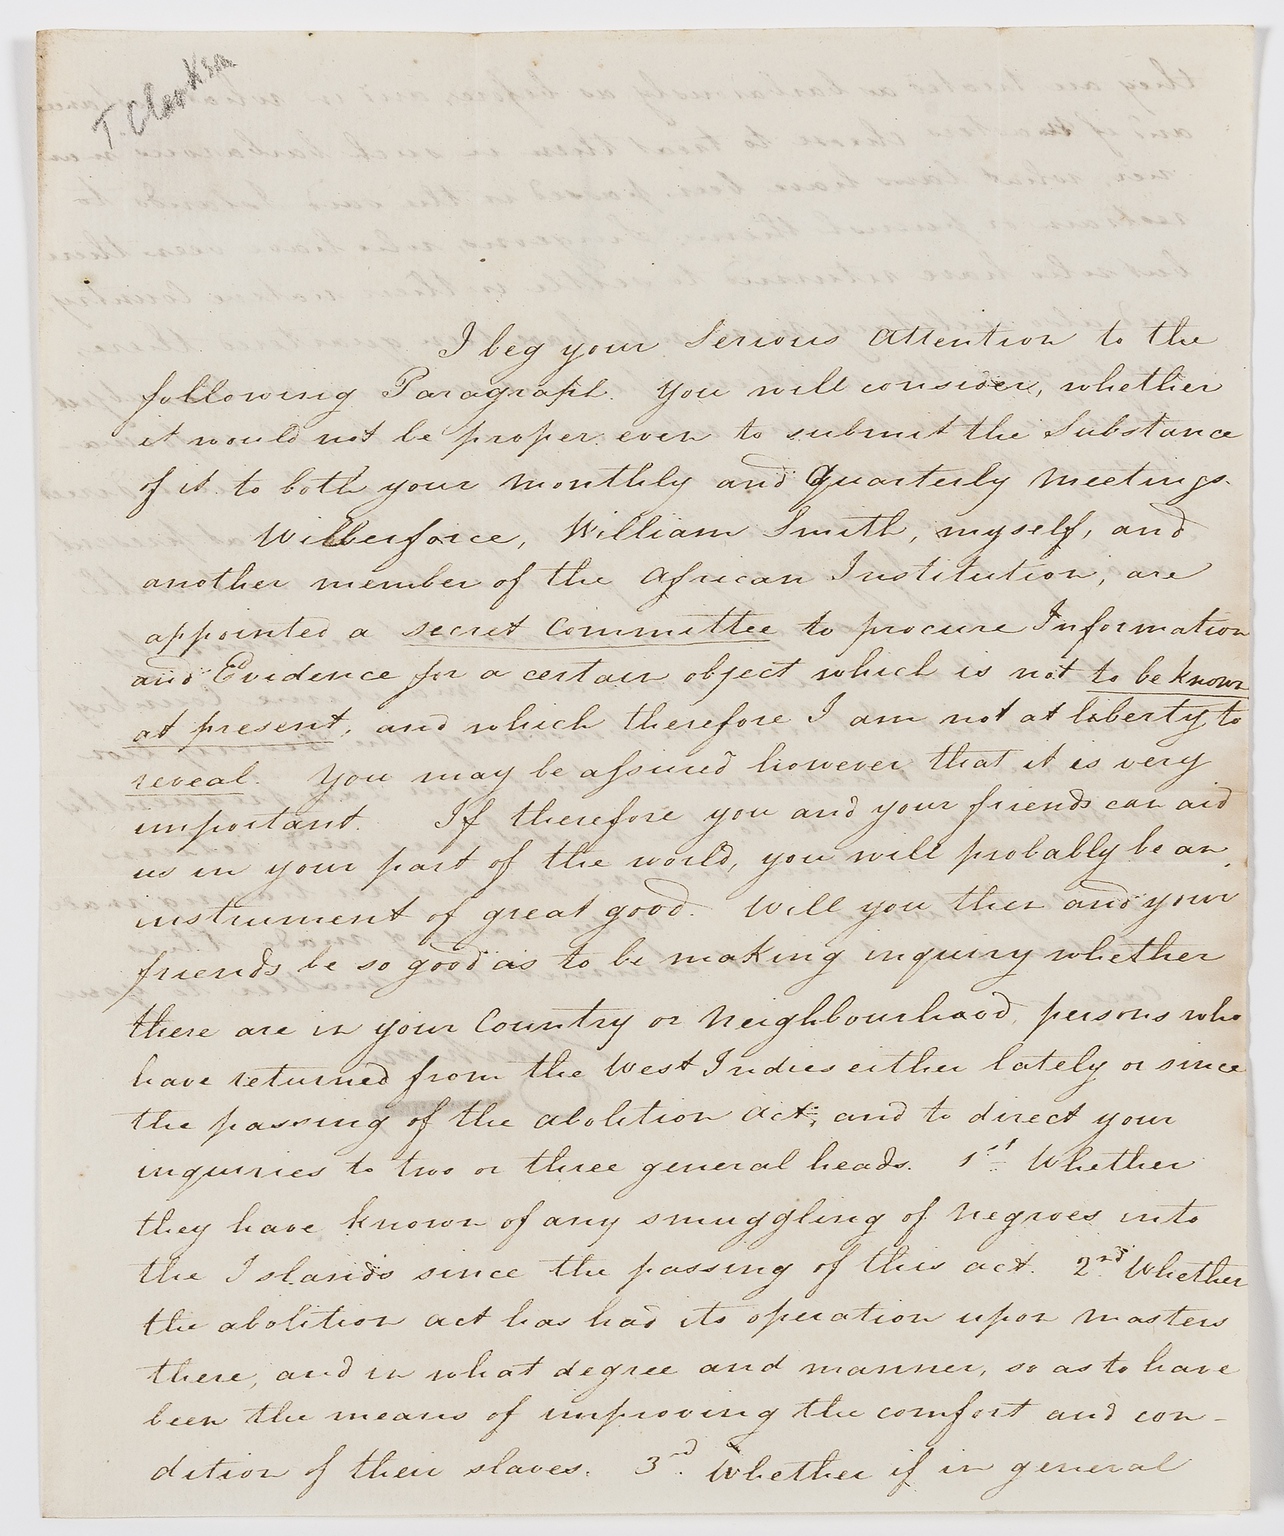 T. Clarkson
I beg your Serious Attention to the
following Paragraph. You will consider, whether
it would not be proper even to submit the Substance
of it to both your Monthly and Quarterly Meetings.
Wilberforce, William Smith, myself, and
another member of the African Institution, are
appointed a secret Committee to procure Information
and Evidence for a certain object which is not to be known
at present, and which therefore I am not at liberty to
reveal. You may be assured however that it is very
important. If therefore you and your friends can aid
us in your part of the world, you will probably be an
instrument of great good. Will you then and your
friends be so good as to be making inquiry whether
there are in your Country or Neighbourhood, persons who
have returned from the West Indies either lately or since
the passing of the abolition act; and to direct your
inquiries to two or three general heads. 1st. Whether
they have known of any smuggling of Negroes into
the Islands since the passing of this act. 2nd. Whether
the abolition act has had its operation upon Masters
there, and in what degree and manner, so as to have
been the means of improving the comfort and con-
dition of their slaves. 3rd. Whether if in general